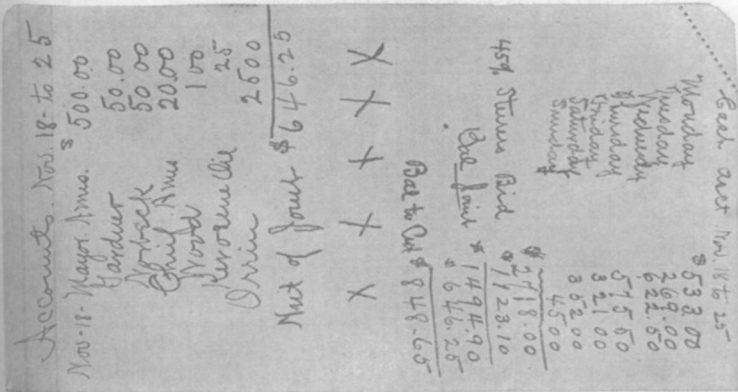 Accounts Nov. 18- to 25
Nov-18- Mayor Ames. $ 500.00
Gardner 50.00
Norbeck 50 00
Chief Ames 20 00
Wood 1 00
Kerosene Oil 25
Orrin 25 00
Nut of Joint $ 646.25
X X X X X
Cash acct Nov 18 to 25
Monday $ 533 00
Tuesday 269.00
Wednesday 622.50
Thursday 575.50
Friday 321 00
Saturday 352 00
Sunday 45 00
$ 2718.00
45% Bid $ 1223.10
Bal Joint $ 1494.90
$ 646.25
Bal to Cut $ 848.65